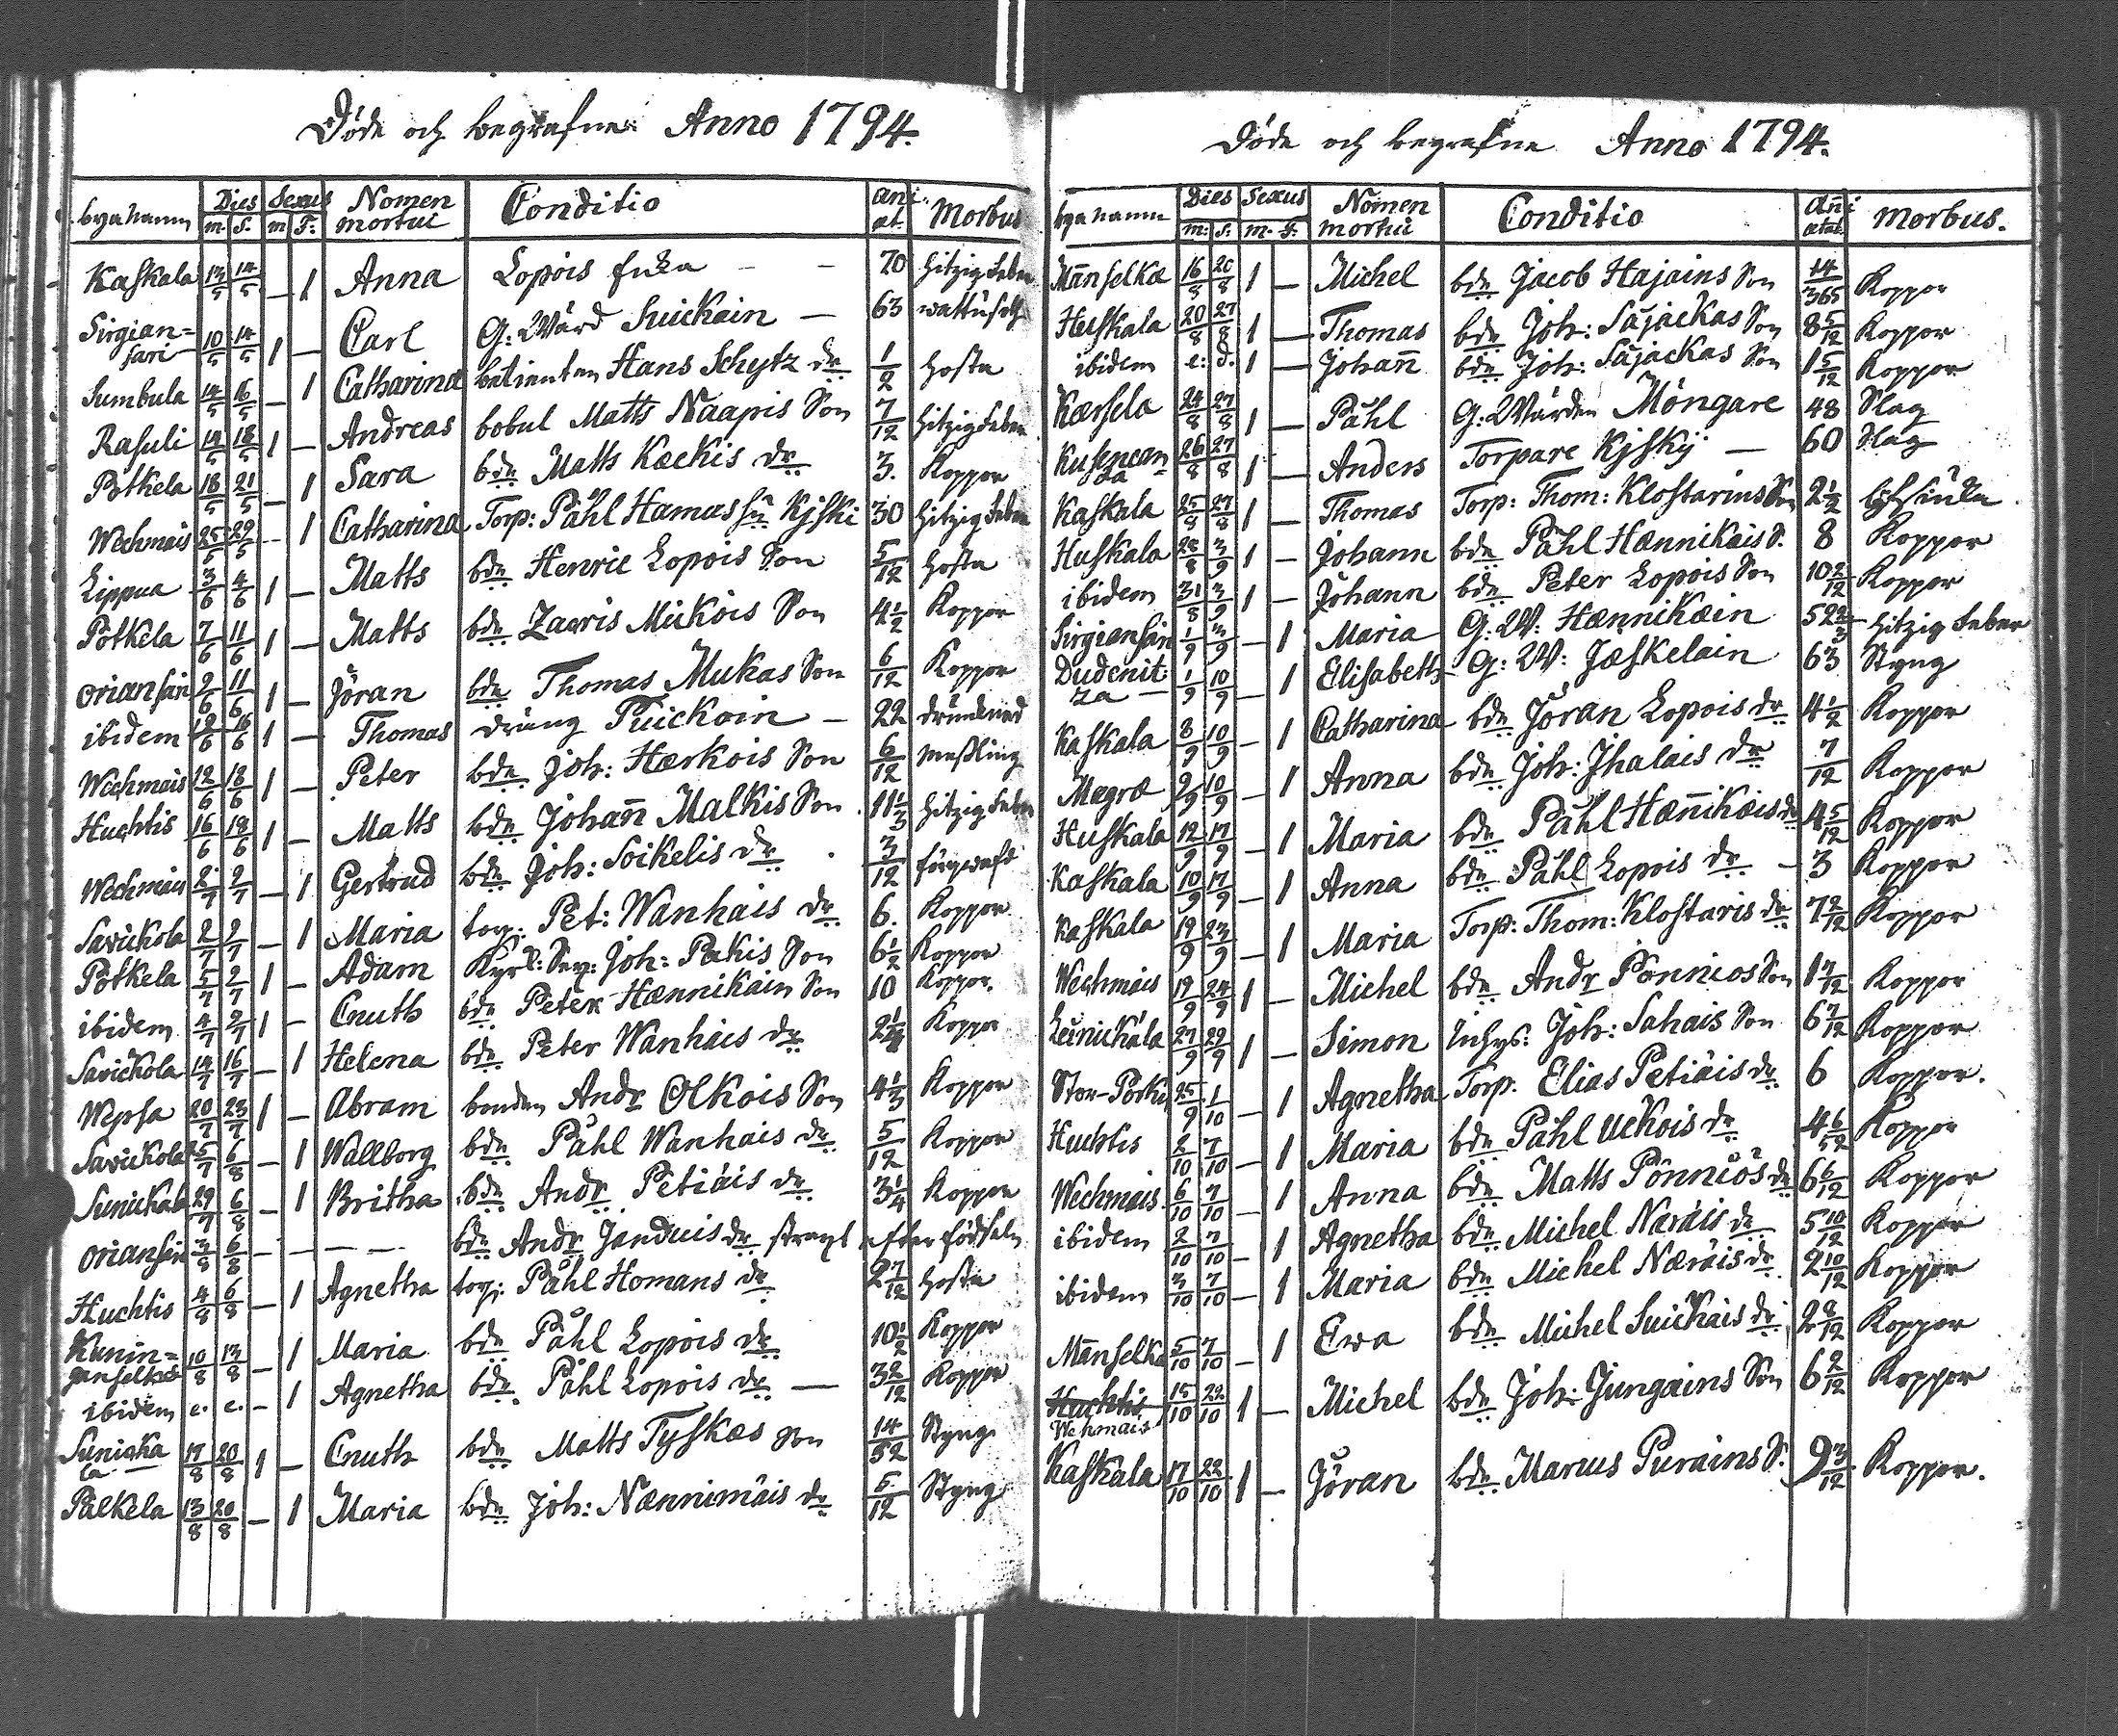 Döde och begrafne Anno 1794.
byanamn Dies m. S. Sexus m F. Nomen mortui Conditio Añi æt. Morbus
Kaskala 13/5 14/5 — 1 Anna Lopois enka — — 70 hitzig feber
Sirgian=
sari 10/5 14/5 1 — Carl G: Wärd Suickain — 63 wattusot
Sumbula 14/5 16/5 — 1 Catharina betienten Hans Schytz dr 1/2 hosta
Rasuli 14/5 18/5 1 — Andreas bobul Matts Naapis Son 7/12 hitzig feber
Pötkela 18/5 21/5 — 1 Sara bdn Matts Kæckis dr 3. Koppor
Wechmais 25/5 29/5 — 1 Catharina Torp: Påhl Hamus hu Kjski 30 hitzig feber
Lippua 3/6 4/6 1 — Matts bdn Henric Lopois Son 5/12 hosta
Pötkela 7/6 11/6 1 — Matts bdn Zacris Mickois Son 4 1/2 Koppor
Oriansari 2/6 11/6 1 — Jöran bdn Thomas Mukas Son 6/12 Koppor
ibidem 12/6 16/6 1 — Thomas dräng Puickoin — 22 drunknad
Wechmais 12/6 18/6 1 — Peter bdn Joh: Hærkois Son 6/12 Messling
Huchtis 16/6 18/6 1 — Matts bdn Johañ Malkis Son 11 1/3 hitzig feber
Wechmais 2/7 2/7 — 1 Gertrud bdn Joh: Soikelis dr 3/12
Savickola 2/7 2/7 — 1 Maria torp: Pet: Wanhais dr 6. Koppor
Pötkela 5/7 2/7 1 — Adam Joh: Pækis Son 6 1/2 Koppor
ibidem 4/7 2/7 1 — Cnuth bdn Peter Hænnikäin Son 10 Koppor.
Savickola 14/7 16/7 — 1 Helena bdn Peter Wanhais dr 2 1/4 Koppor
Wepsa 20/7 23/7 1 — Abram bonden Andr Olkois Son 4 1/3 Koppor
Savickola 25/7 6/8 — 1 Wallborg bdn Påhl Wanhais dr 5/12 Koppor
Sunickala 29/7 6/8 — 1 Britha bdn Andr Petiäis dr 3 1/4 Koppor
Oriansari 3/8 6/8 — — — bdn Andr Janduis dr straxt efter födseln
Huchtis 4/8 6/8 — 1 Agnetha torp: Påhl Homans dr 2 7/12 hosta
Kunin=
ganselkæ 10/8 13/8 — 1 Maria bdn Påhl Lopois dr 10 1/2 Koppor
ibidem e. e. — 1 Agnetha bdn Påhl Lopois dr — 3 2/12 Koppor
Sunicka
la — 17/8 20/8 1 — Cnuth bdn Matts Tyskas Son 14/52 Styng
Pälkela 13/8 20/8 — 1 Maria bdn Joh: Nænnimäis dr 5/12 Styng
Döde och begrafne Anno 1794.
byanamn Dies m: S: Sexus m. F. Nomen mortui Conditio Añi ætat. Morbus.
Mänselkæ 16/8 20/8 1 — Michel bdn Jacob Hajains Son 14/365 Koppor
Huskala 20/8 27/8 1 — Thomas bdn Joh: Säjäckas Son 8 5/12 Koppor
ibidem e: d. 1 — Johañ bdn Joh: Säjackas Son 1 5/12 Koppor
Kærsela 24/8 27/8 1 — Påhl G: Wärden Möngare 48 Slag
Kusencan=
za 26/8 27/8 1 — Anders Torpare Kjskij — 60 Slag
Kaskala 25/8 27/8 1 — Thomas Torp: Thom: Klostarins Son 2 1/2
Huskala 28/8 3/9 1 — Johann bdn Påhl Hænnikäis S. 8 Koppor
ibidem 31/8 3/9 1 — Johann bdn Peter Lopois Son 10 2/12 Koppor
Sirgiansari 1/9 3/9 — 1 Maria G: W: Hænnikæin 52 2/3 hitzig feber
Dudenit
za — 1/9 10/9 — 1 Elisabeth G: W: Jæskelain 63 Styng
Kaskala 8/9 10/9 — 1 Catharina bdn Jöran Lopois dr 4 1/2 Koppor
Mægræ 2/9 10/9 — 1 Anna bdn Joh: Jhalais dr 7/12 Koppor
Huskala 12/9 17/9 — 1 Maria bdn Påhl Hæñikæis dr 4 5/12 Koppor
Kaskala 10/9 17/9 — 1 Anna bdn Påhl Lopois dr — 3 Koppor
Kaskala 19/9 23/9 — 1 Maria Torp: Thom: Klostaris dr 7 2/12 Koppor
Wechmais 19/9 24/9 1 — Michel bdn Andr Pönniös Son 1 7/12 Koppor
Leinickala 27/9 29/9 1 — Simon Inhys: Joh: Sahais Son 6 7/12 Koppor
Stor-Porku 25/9 1/10 — 1 Agnetha Torp. Elias Petiäis dr 6 Koppor.
Huchtis 2/10 7/10 — 1 Maria bdn Påhl Uckois dr 4 6/52 Koppor
Wechmais 6/10 7/10 — 1 Anna bdn Matts Pönniös dr 6 6/12 Koppor
ibidem 2/10 7/10 — 1 Agnetha bdn Michel Næräis dr 5 10/12 Koppor
ibidem 3/10 7/10 — 1 Maria bdn Michel Næräis dr 2 10/12 Koppor
Mänselkæ 5/10 7/10 — 1 Ewa bdn Michel Suickais dr 2 2/12 Koppor
Huchtis 15/10 22/10 1 — Michel bdn Joh: Jungains Son 6 2/12 Koppor
Wehmais
Kaskala 17/10 22/10 1 — Jöran bdn Marcus Puräins S. 9 3/12 Koppor.